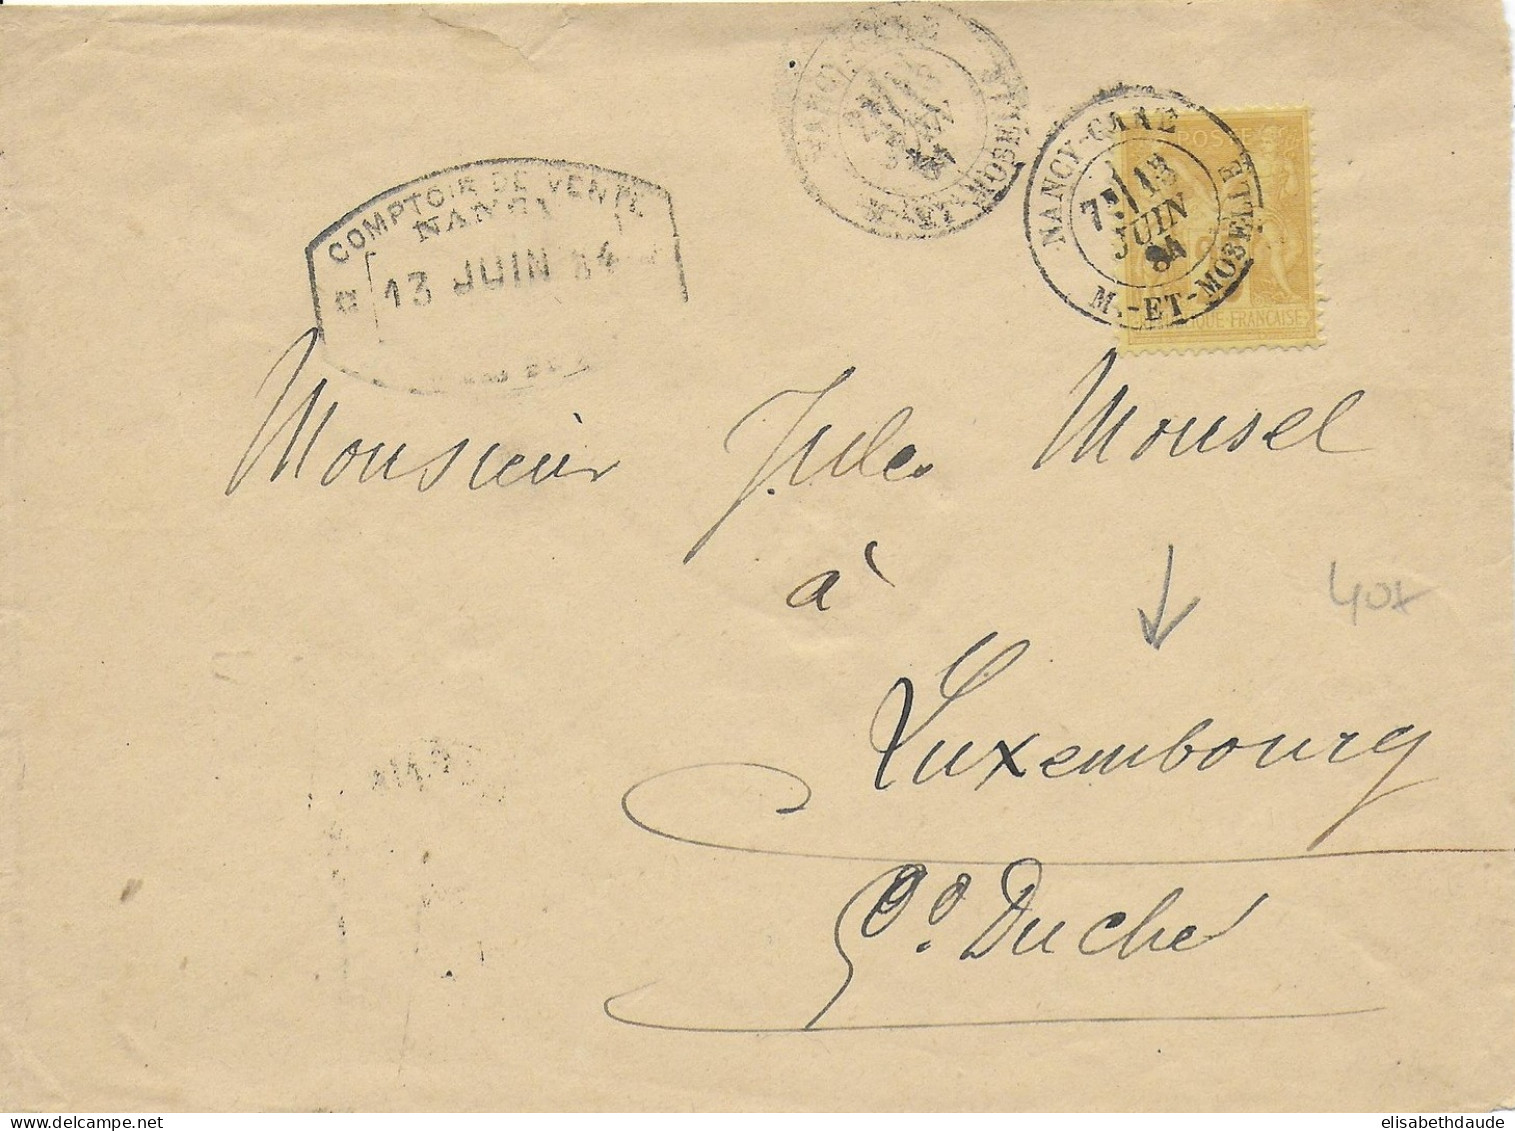 NANCY-GARE
M.-ET-MOSELLE
NANCY-GARE
7E 13
JUIN
84
M.-ET-MOSELLE
POSTE
RÉPUBLIQUE FRANÇAISE
COMPTOIR DE VENTE
NANCY
13 JUIN 84
Monsieur Jules Mousel
à
40x
Luxembourg
Gd Duché
elisabethdaude